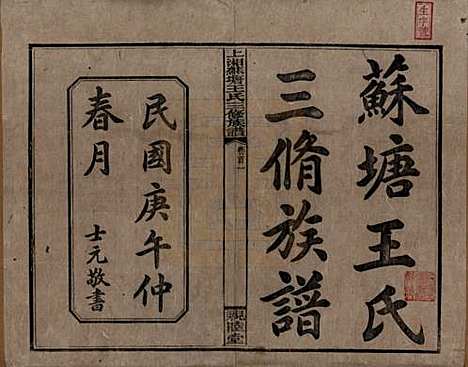 蘇塘王氏
三脩族譜
上湘蘇塘王氏三修族譜
卷首一
親睦堂
民國庚午仲
春月
士元敬書